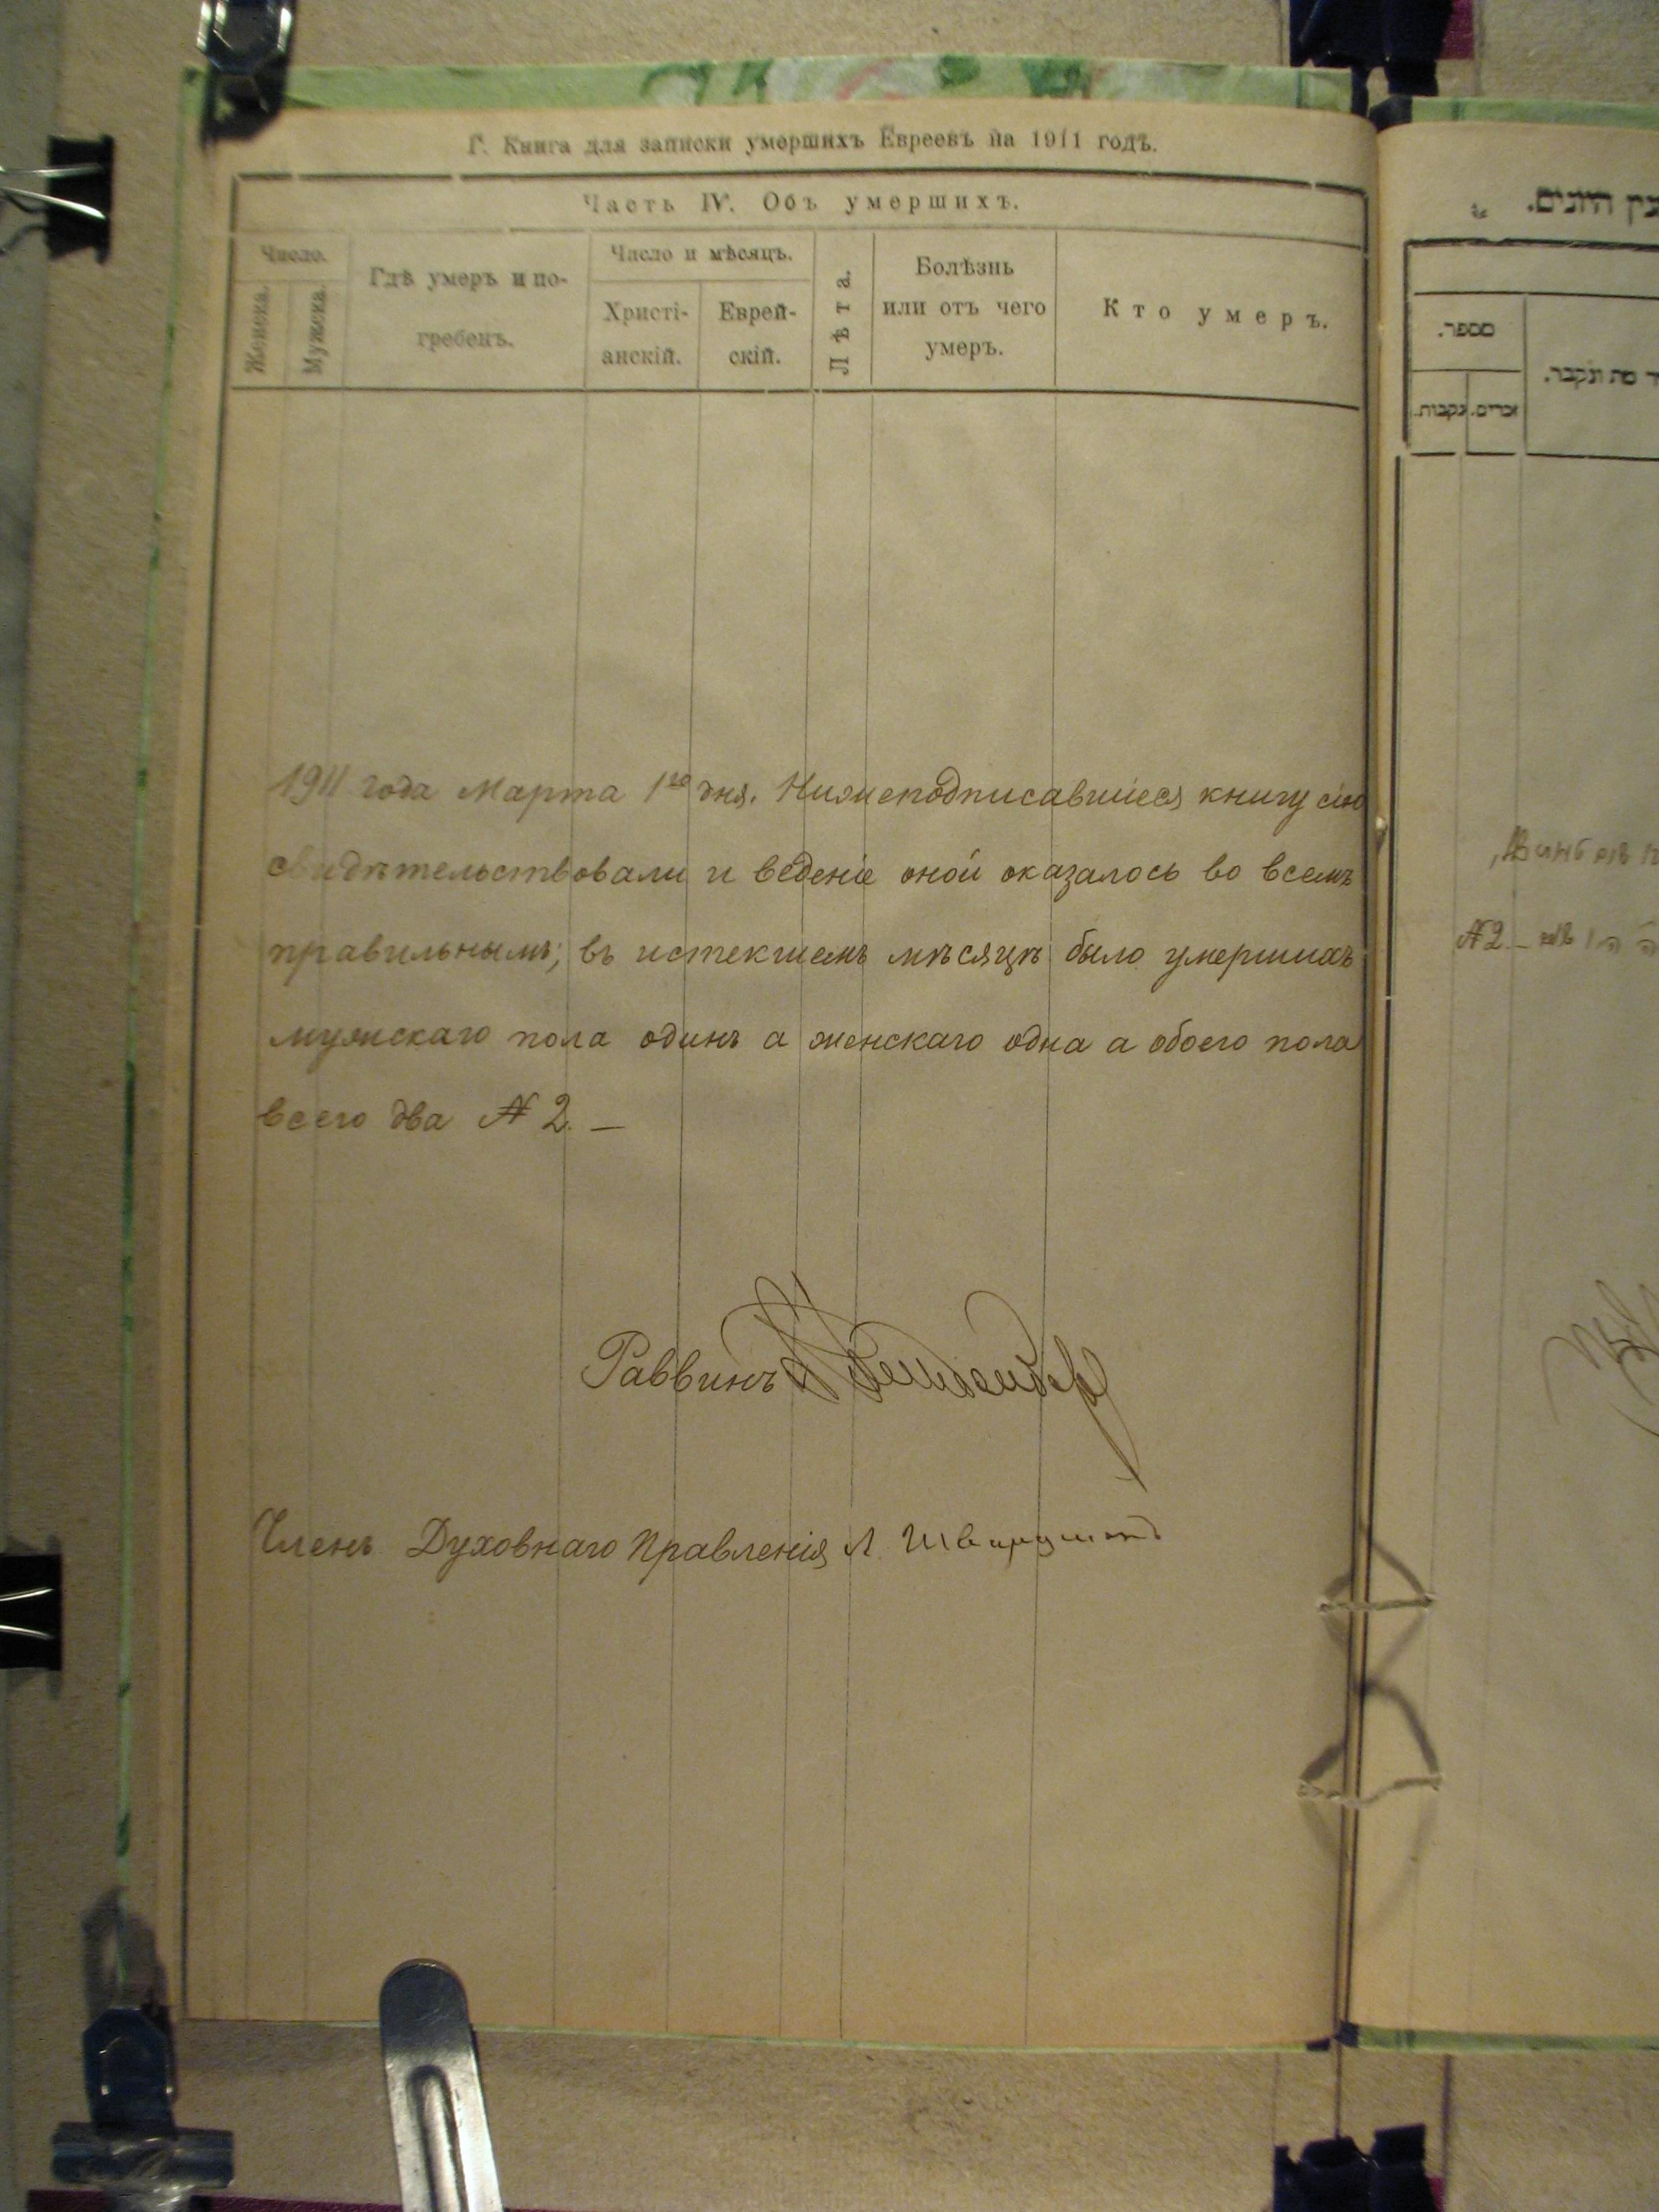 Г. Книга для записки умершихъ Евреевъ на 1911 годъ.
Часть IV. Объ умершихъ.
Число.
Женска.
Мужска.
Гдѣ умеръ и по-
гребенъ.
Число и мѣсяцъ.
Христі-
анскій.
Еврей-
скій.
Лѣта.
Болѣзнь
или отъ чего
умеръ.
Кто умеръ.
1911 года Марта 1го дня. Нижеподписавшіеся книгу сію
свидѣтельствовали и веденіе оной оказалось во всемъ
правильнымъ; въ истекшемъ мѣсяцѣ было умершихъ
мужскаго пола одинъ а женскаго одна а обоего пола
всего два № 2. —
Раввинъ
Членъ Духовнаго Правленія Л.
מספר.
זכרים. נקבות.
מת ונקבר.
№ 2. —